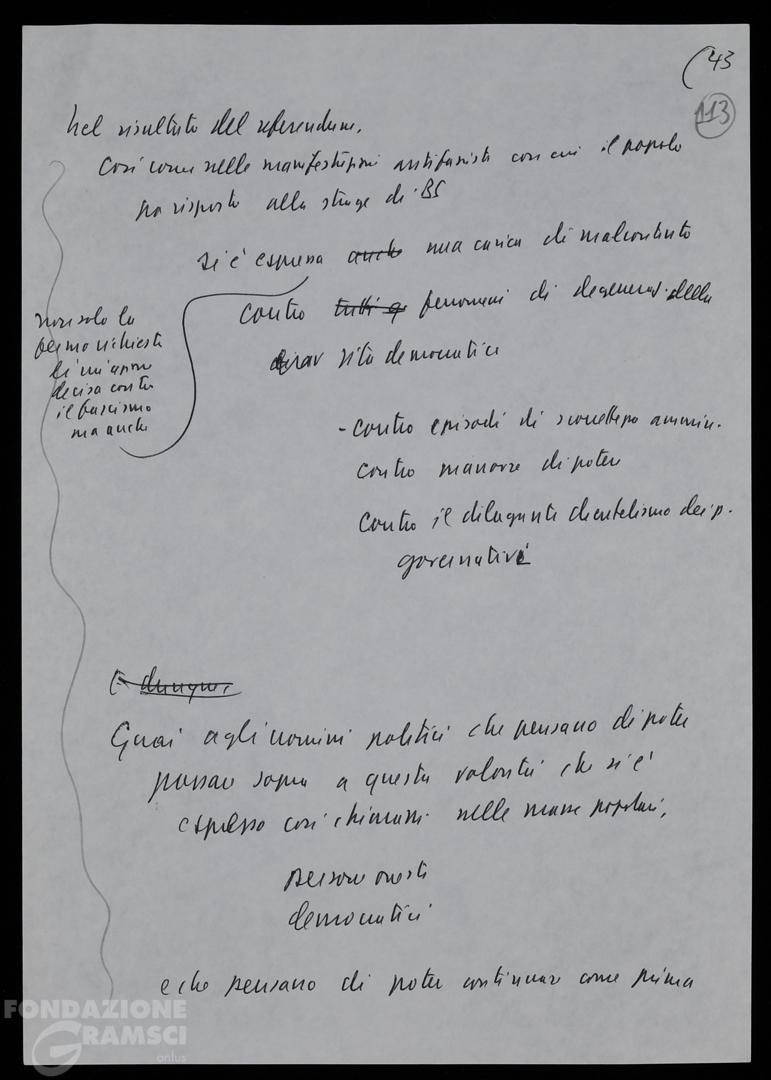 (43
113
Nel risultato del referendum,
Così come nelle manifestazioni antifasciste con cui il popolo
ha risposto alla strage di BS
si è espressa anche una carica di malcontento
contro tutti q fenomeni di degeneraz. della
vita democratica
non solo la
ferma richiesta
di un'azione
decisa contro
il fascismo
ma anche
- contro episodi di scorrettezza ammin.
contro manovre di potere
contro il dilagante clientelismo dei p.
governativi
E dunque,
Guai agli uomini politici che pensano di poter
passare sopra a questa volontà che si è
espressa così chiaramente nelle masse popolari,
persone oneste
democratici
e che pensano di poter continuare come prima
FONDAZIONE
GRAMSCI
onlus